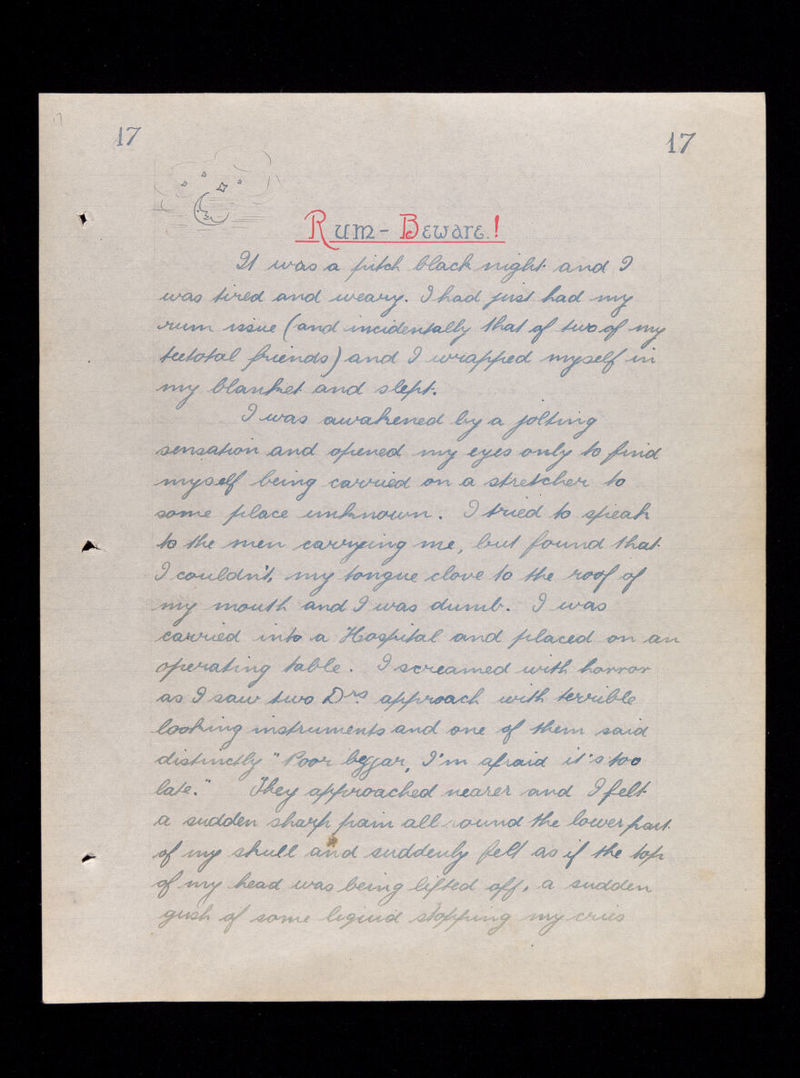 17
17 17
Rum - Beware!
It was a pitch black night and I
was tired and weary. I had just had my
rum issue (and incidentally that of two of my
teetotal friends) and I wrapped myself in
my blanket and slept.
I was awakened by a jolting
sensation and opened my eyes only to find
myself being carried on a stretcher to
some place unknown. I tried to speak
to the men carrying me, but found that
I couldn't, my tongue clove to the roof of
my mouth and I was dumb. I was
carried into a Hospital and placed on an
operating table. I screamed with horror
as I saw two Drs approach with terrible
looking instruments and one of them said
distinctly "Poor beggar, I'm afraid it's too
late." They approached nearer and I felt
a sudden sharp pain all round the lower part
of my skull and suddenly felt as if the top
of my head was being lifted off, a sudden
gush of some liquid stopping my cries